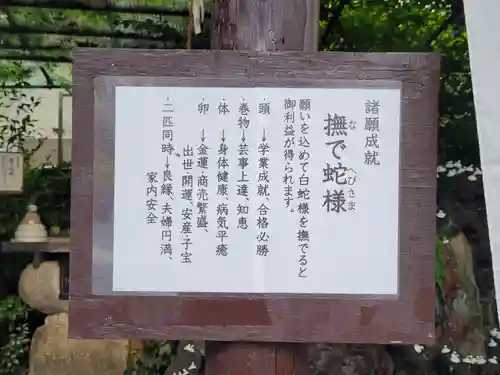 諸願成就
撫で蛇様
な
へび
さま
願いを込めて白蛇様を撫でると
御利益が得られます。
・頭 →学業成就、合格必勝
・巻物→芸事上達、知恵
・体 →身体健康、病気平癒
・卵 →金運・商売繁盛、
出世・開運、安産・子宝
・二匹同時→良縁、夫婦円満、
家内安全